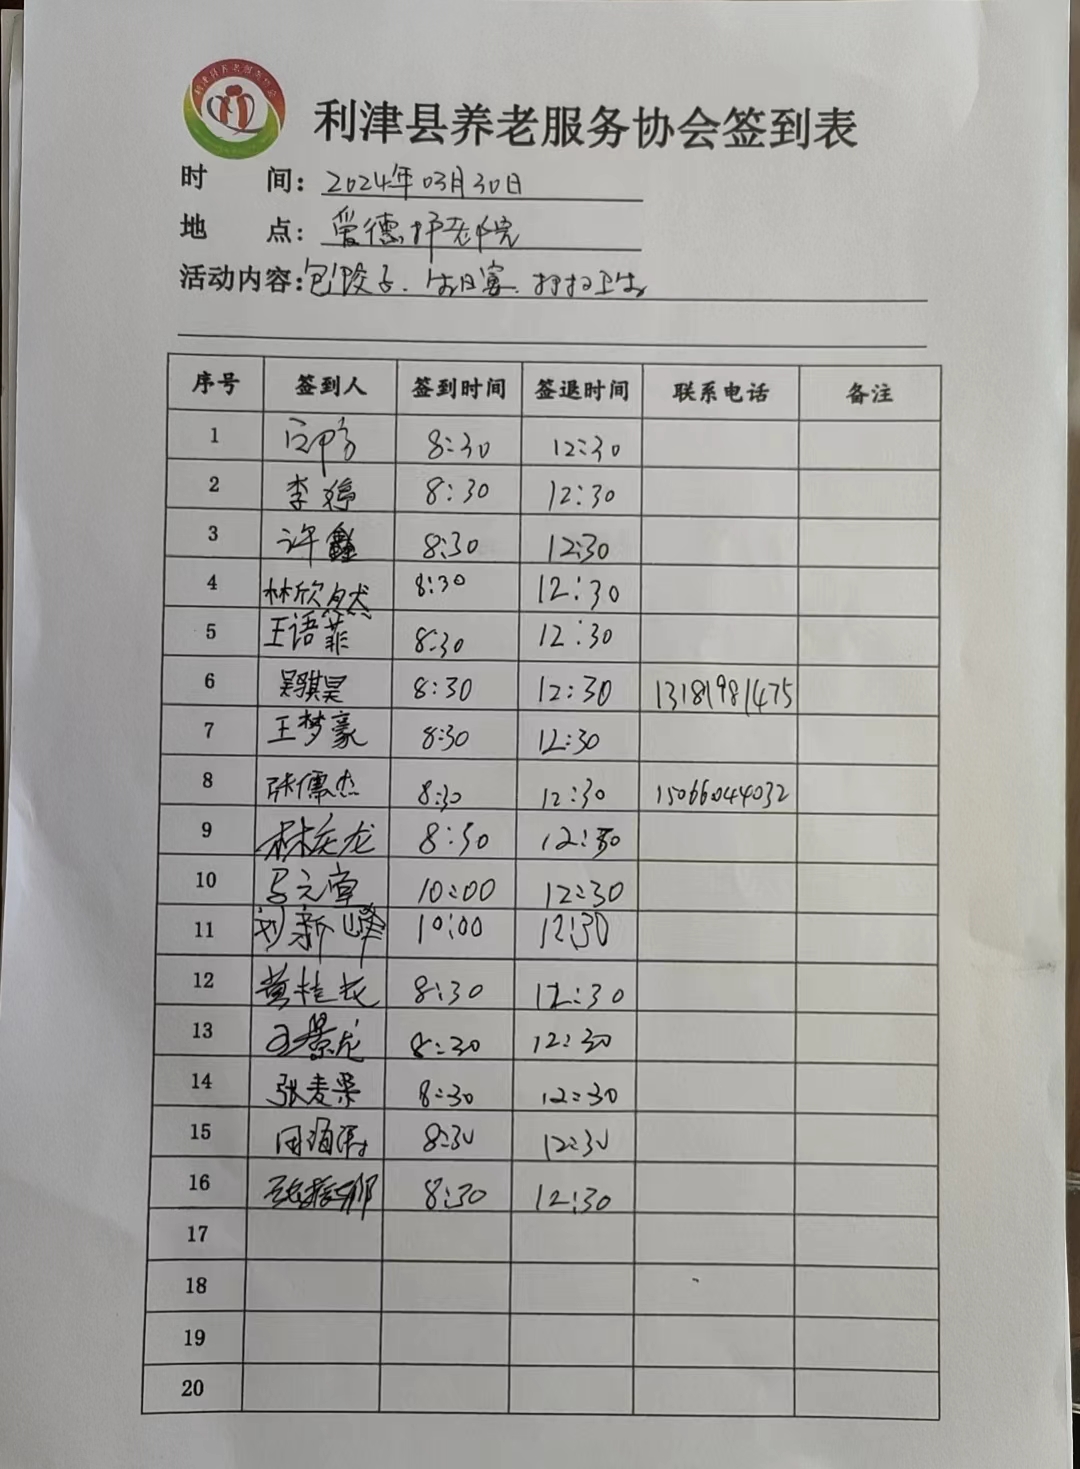 利津县养老服务协会签到表
时 间: 2024年03月30日
地 点: 爱德护老院
活动内容: 包饺子、生日宴、打扫卫生
序号 签到人 签到时间 签退时间 联系电话 备注
1 8:30 12:30
2 李婷 8:30 12:30
3 许鑫 8:30 12:30
4 林欣然 8:30 12:30
5 王语菲 8:30 12:30
6 吴骐昊 8:30 12:30 13181981475
7 王梦豪 8:30 12:30
8 张儒杰 8:30 12:30 15066044032
9 8:30 12:30
10 10:00 12:30
11 刘新峰 10:00 12:30
12 8:30 12:30
13 王景龙 8:30 12:30
14 张麦果 8:30 12:30
15 8:30 12:30
16 8:30 12:30
17
18
19
20